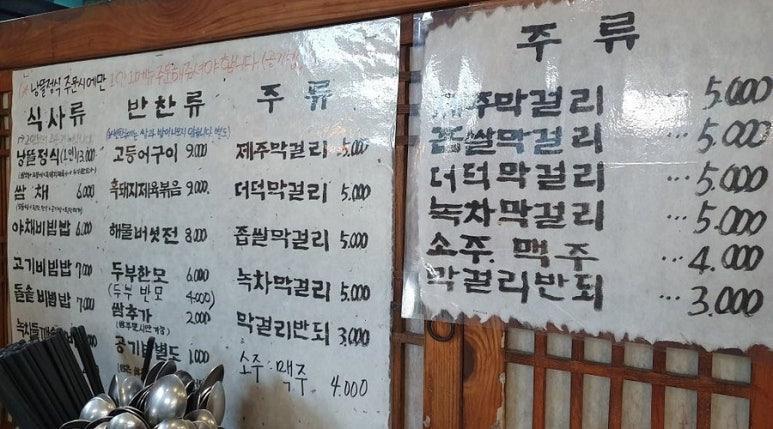 낭뜰정식 주문시에만
식사류
낭뜰정식(1인) 13,000
쌈 채 6,000
야채비빔밥 6,000
고기비빔밥 7,000
돌솥비빔밥 7,000
반찬류
고등어구이 9,000
흑돼지제육볶음 9,000
해물버섯전 8,000
두부한모 6,000
(두부 반모 4,000)
쌈추가 2,000
공기밥별도 1,000
주 류
제주막걸리 5,000
더덕막걸리 5,000
좁쌀막걸리 5,000
녹차막걸리 5,000
막걸리반되 3,000
소주·맥주 4,000
주 류
제주막걸리 ··· 5.000
좁쌀막걸리 ··· 5.000
더덕막걸리 ··· 5.000
녹차막걸리 ··· 5.000
소주. 맥주 ··· 4.000
막걸리반되 ··· 3.000